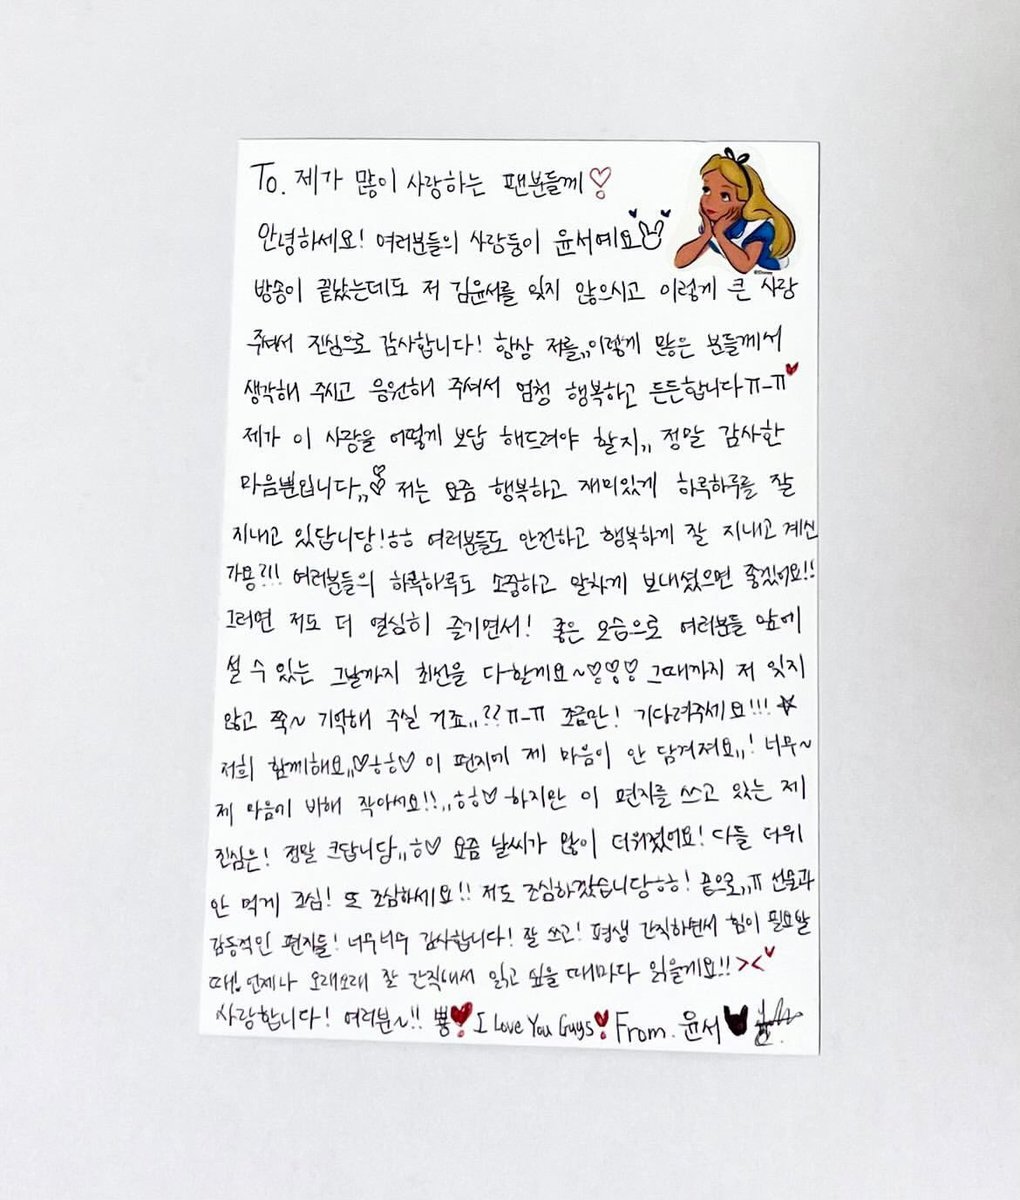 To. 제가 많이 사랑하는 팬분들께♡
안녕하세요! 여러분들의 사랑둥이 윤서예요
방송이 끝났는데도 저 김윤서를 잊지 않으시고 이렇게 큰 사랑
주셔서 진심으로 감사합니다! 항상 저를,, 이렇게 많은 분들께서
생각해 주시고 응원해 주셔서 엄청 행복하고 든든합니다ㅠ_ㅠ♥
제가 이 사랑을 어떻게 보답 해드려야 할지,, 정말 감사한
마음뿐입니다,, 저는 요즘 행복하고 재미있게 하루하루를 잘
지내고 있답니당!ㅎㅎ 여러분들도 안전하고 행복하게 잘 지내고 계신
가용?!! 여러분들의 하루하루도 소중하고 알차게 보내셨으면 좋겠어요!!
그러면 저도 더 열심히 즐기면서! 좋은 모습으로 여러분들 앞에
설 수 있는 그날까지 최선을 다할게요~♡♡♡ 그때까지 저 잊지
않고 쭉~ 기억해 주실 거죠,,?? ㅠ-ㅠ 조금만! 기다려주세요!!! ☆
저희 함께해요,,♡ㅎㅎ♡ 이 편지에 제 마음이 안 담겨져요,,! 너무~
제 마음에 비해 작아서요!!,,ㅎㅎ♡ 하지만 이 편지를 쓰고 있는 제
진심은! 정말 크답니당,,ㅎ♡ 요즘 날씨가 많이 더워졌어요! 다들 더위
안 먹게 조심! 또 조심하세요!! 저도 조심하겠습니당ㅎㅎ! 끝으로,,ㅠ 선물과
감동적인 편지들! 너무너무 감사합니다! 잘 쓰고! 평생 간직하면서 힘이 필요할
때! 언제나 오래오래 잘 간직해서 읽고 싶을 때마다 읽을게요!! ><♥
사랑합니다! 여러분~!! 뿅♥ I Love You Guys♥ From. 윤서
©Disney